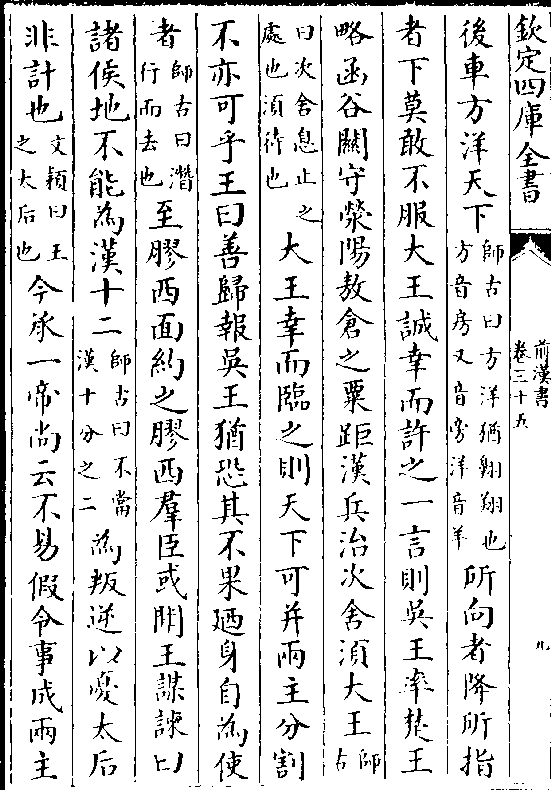 欽定四庫全書
前漢書
卷三十五
九
後車方洋天下師古曰方洋猶翱翔也方音房又音旁洋音羊所向者降所指
者下莫敢不服大王誠幸而許之一言則吳王率楚王
略函谷關守滎陽敖倉之粟距漢兵治次舍須大王師古
曰次舍息止之處也須待也大王幸而臨之則天下可并兩主分割
不亦可乎王曰善歸報吳王猶恐其不果廼身自為使
者師古曰潛行而去也至膠西面約之膠西羣臣或聞王謀諫曰
諸侯地不能為漢十二師古曰不當漢十分之二為叛逆以憂太后
非計也文穎曰王之太后也今承一帝尚云不易假令事成兩主